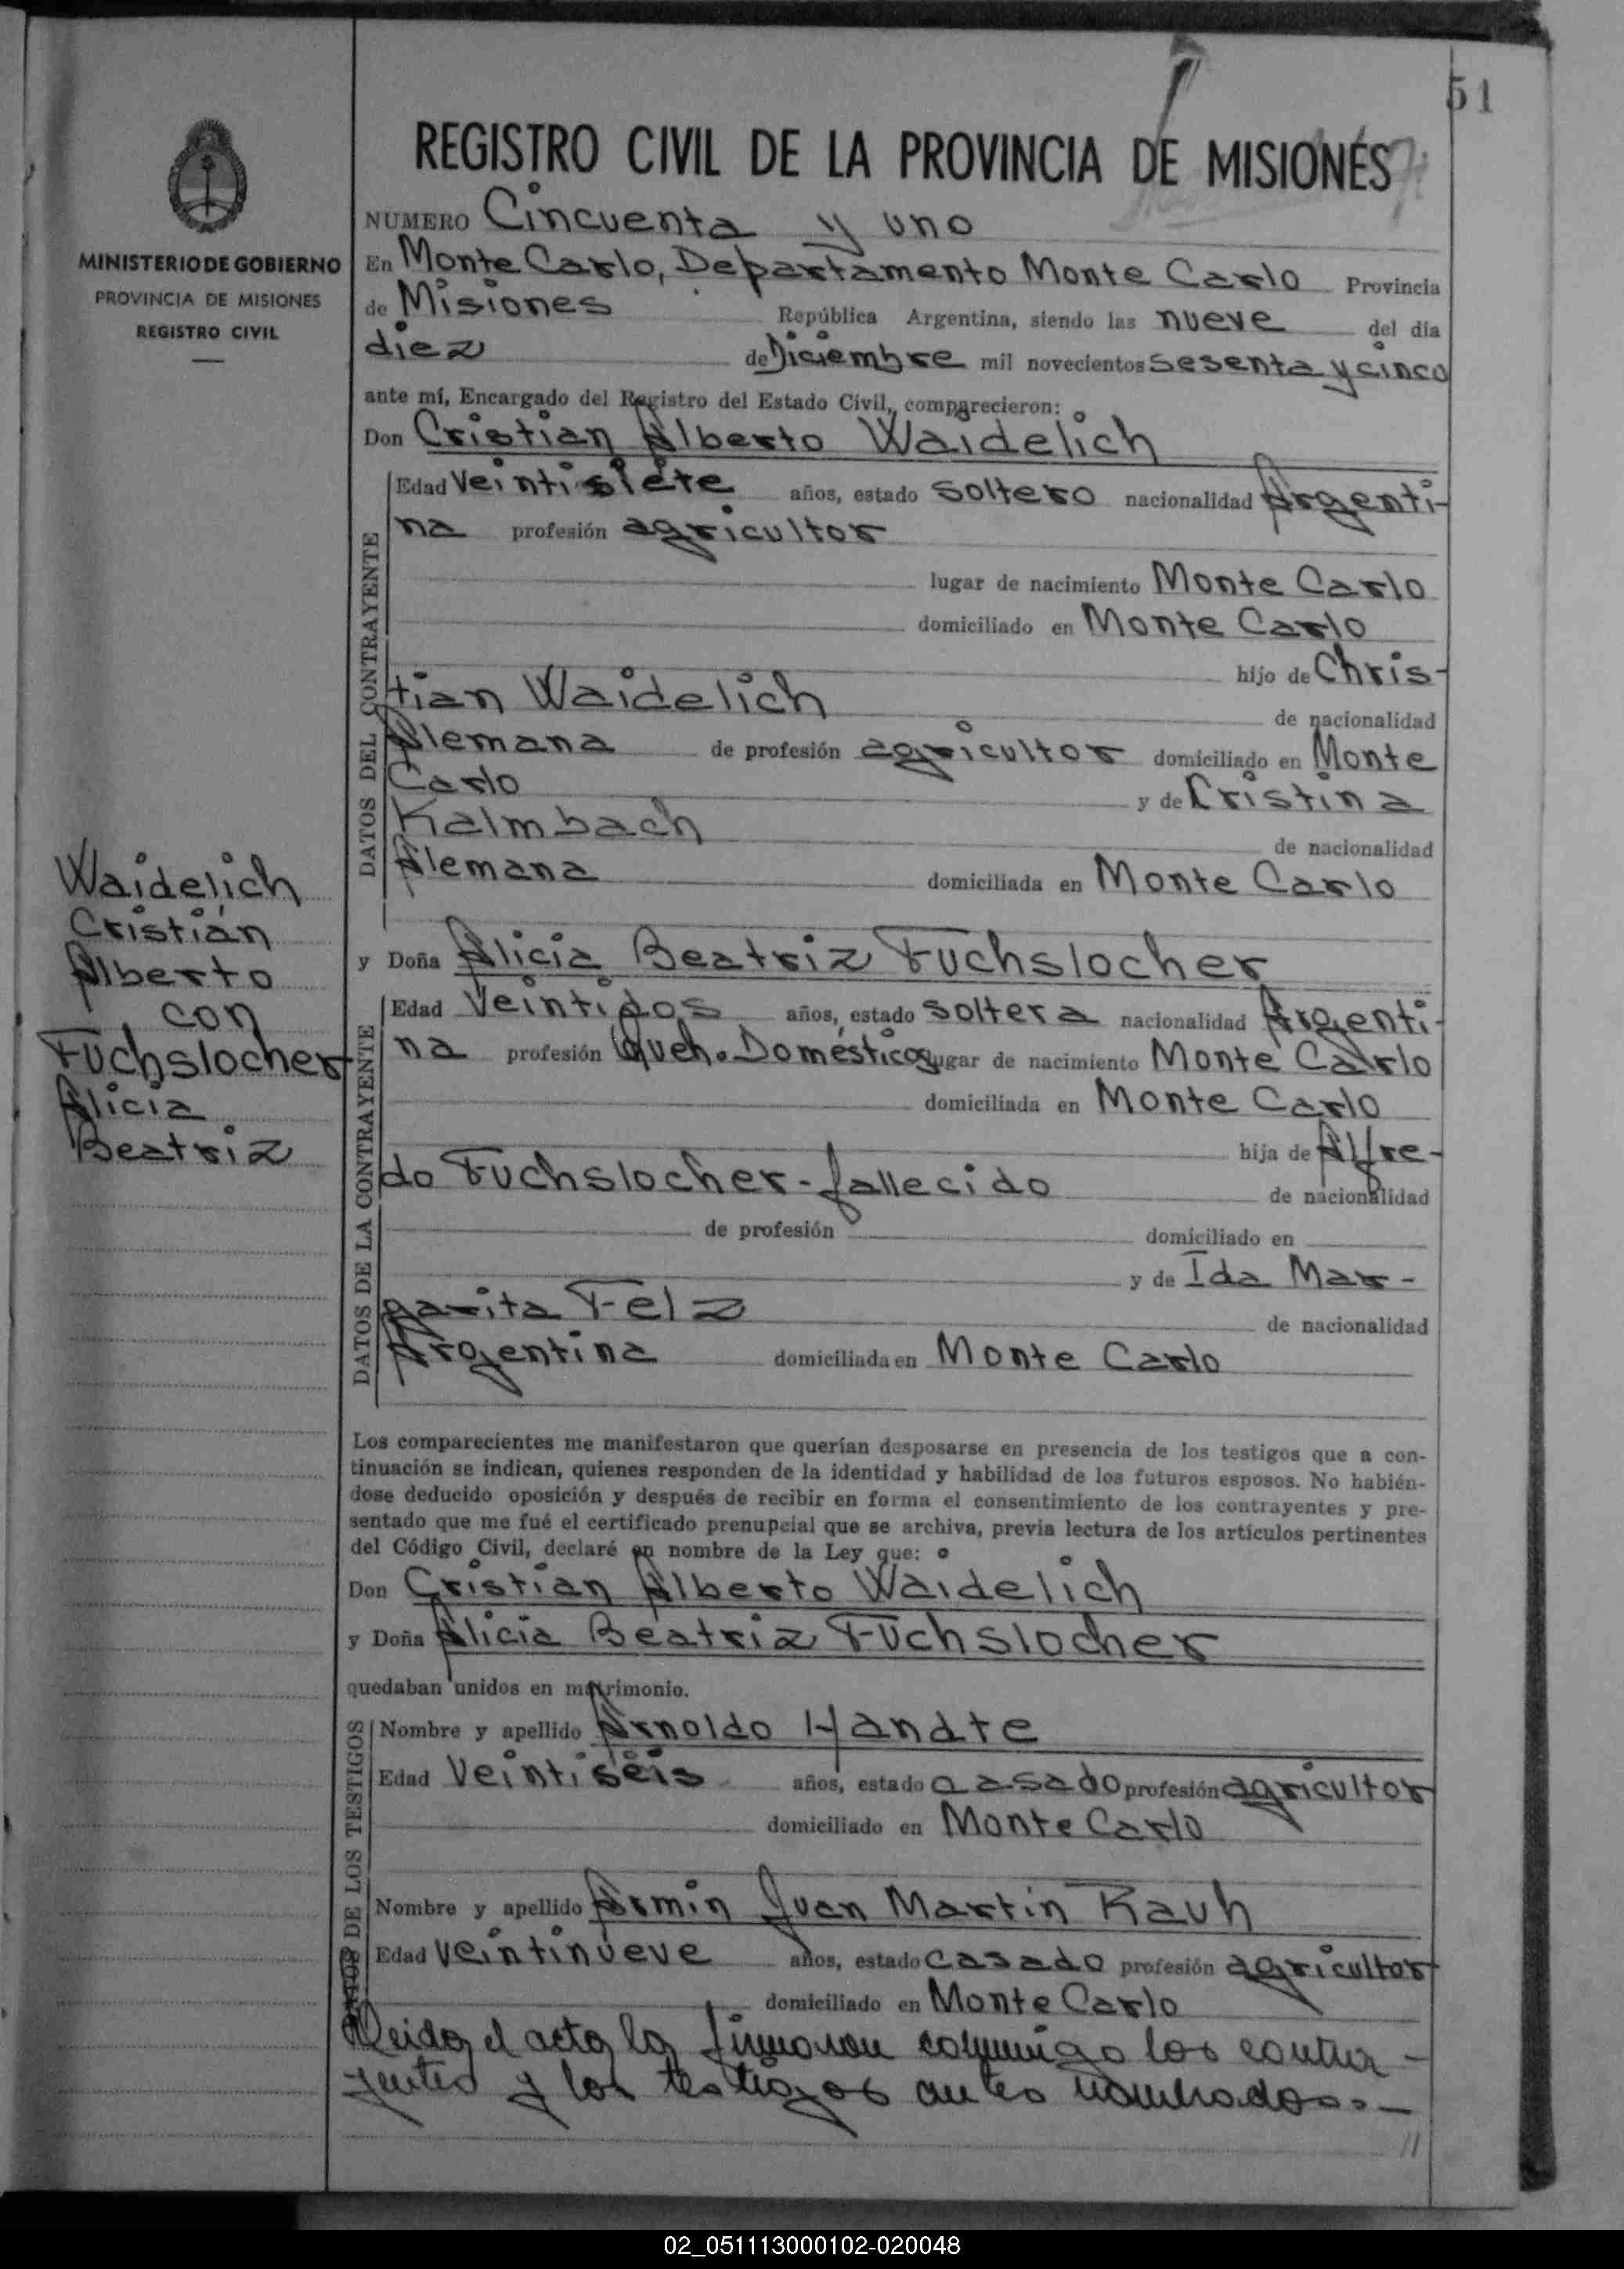 51
REGISTRO CIVIL DE LA PROVINCIA DE MISIONES
MINISTERIO DE GOBIERNO
PROVINCIA DE MISIONES
REGISTRO CIVIL
NUMERO Cincuenta y uno
En Monte Carlo, Departamento Monte Carlo Provincia
de Misiones República Argentina, siendo las nueve del día
diez de Diciembre mil novecientos sesenta y cinco
ante mí, Encargado del Registro del Estado Civil, comparecieron:
Don Cristian Alberto Waidelich
DATOS DEL CONTRAYENTE
Edad Veintisiete años, estado soltero nacionalidad Argenti-
na profesión agricultor
lugar de nacimiento Monte Carlo
domiciliado en Monte Carlo
hijo de Chris-
tian Waidelich de nacionalidad
Alemana de profesión agricultor domiciliado en Monte
Carlo y de Cristina
Kalmbach de nacionalidad
Alemana domiciliada en Monte Carlo
Waidelich
Cristián
Alberto
con
Fuchslocher
Alicia
Beatriz
y Doña Alicia Beatriz Fuchslocher
DATOS DE LA CONTRAYENTE
Edad Veintidos años, estado soltera nacionalidad Argenti-
na profesión Queh. Domésticos lugar de nacimiento Monte Carlo
domiciliada en Monte Carlo
hija de Alfre-
do Fuchslocher - fallecido de nacionalidad
de profesión domiciliado en
y de Ida Mar-
garita Felz de nacionalidad
Argentina domiciliada en Monte Carlo
Los comparecientes me manifestaron que querían desposarse en presencia de los testigos que a con-
tinuación se indican, quienes responden de la identidad y habilidad de los futuros esposos. No habién-
dose deducido oposición y después de recibir en forma el consentimiento de los contrayentes y pre-
sentado que me fué el certificado prenupcial que se archiva, previa lectura de los artículos pertinentes
del Código Civil, declaré en nombre de la Ley que:
Don Cristian Alberto Waidelich
y Doña Alicia Beatriz Fuchslocher
quedaban unidos en matrimonio.
DATOS DE LOS TESTIGOS
Nombre y apellido Arnoldo Handte
Edad Veintiséis años, estado casado profesión agricultor
domiciliado en Monte Carlo
Nombre y apellido Armin Juan Martin Rauh
Edad veintinueve años, estado casado profesión agricultor
domiciliado en Monte Carlo
Leida el acta la firmaron conmigo los contra-
yentes y los testigos antes nombrados.-
//
02_051113000102-020048